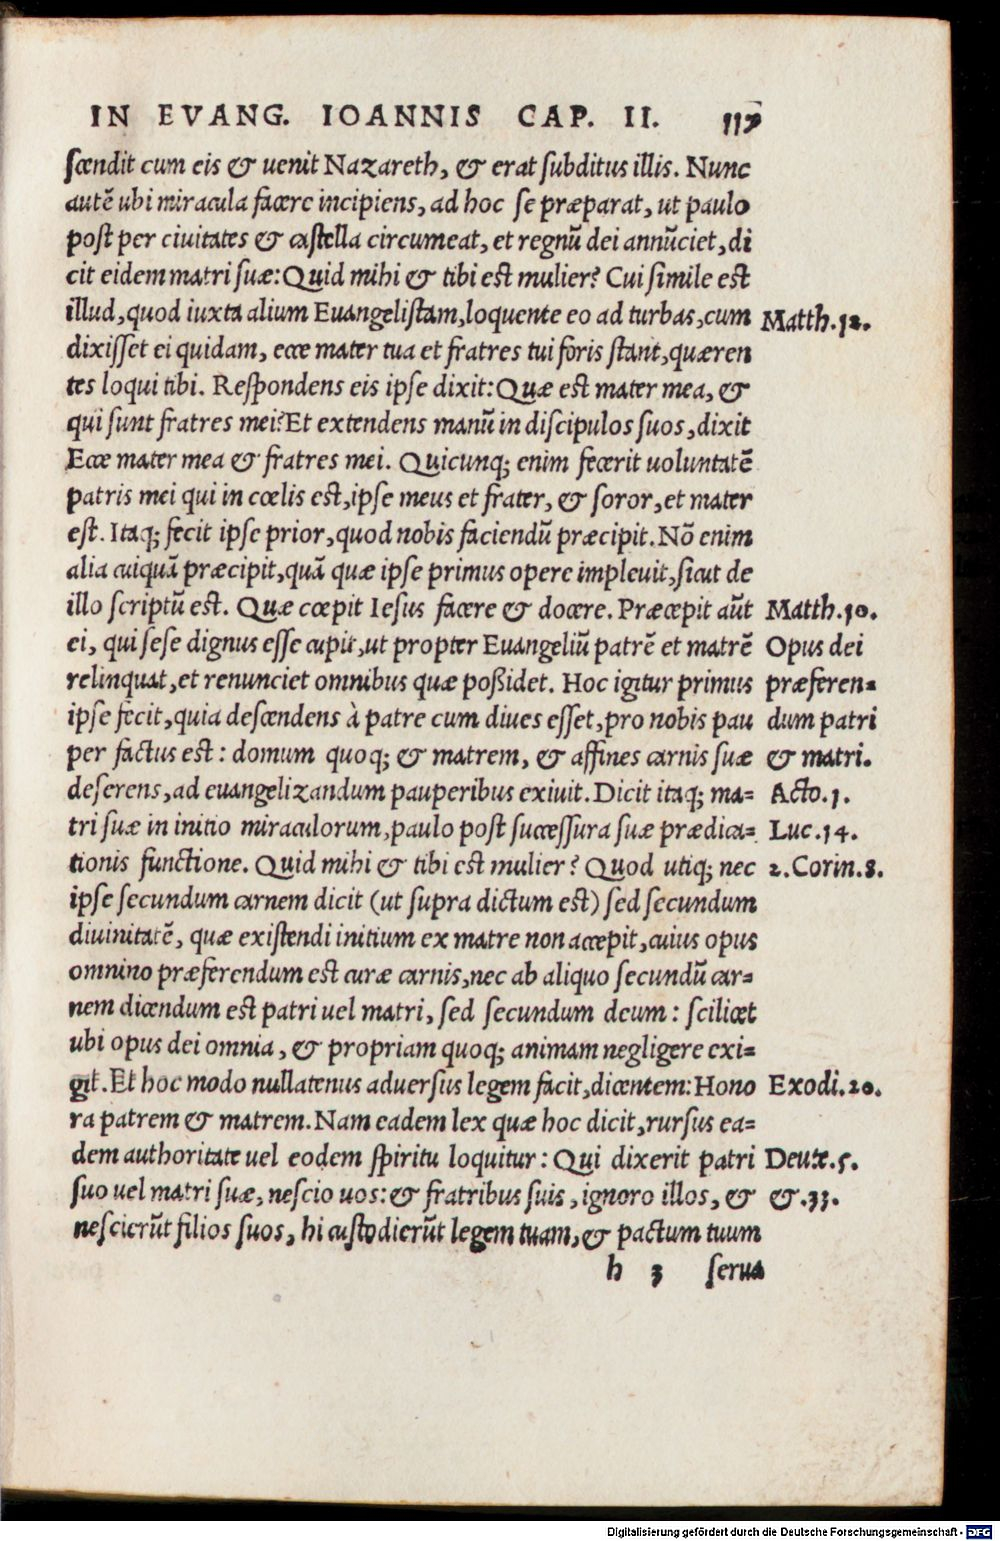 IN EVANG. IOANNIS CAP. II. 117
scendit cum eis & uenit Nazareth, & erat subditus illis. Nunc
autē ubi miracula facere incipiens, ad hoc se præparat, ut paulo
post per ciuitates & castella circumeat, et regnū dei annūciet, di
cit eidem matri suæ: Quid mihi & tibi est mulier? Cui simile est
illud, quod iuxta alium Euangelistam, loquente eo ad turbas, cum Matth. 12.
dixisset ei quidam, ecce mater tua et fratres tui foris stant, quæren
tes loqui tibi. Respondens eis ipse dixit: Quæ est mater mea, &
qui sunt fratres mei? Et extendens manū in discipulos suos, dixit
Ecce mater mea & fratres mei. Quicunq; enim fecerit uoluntatē
patris mei qui in cœlis est, ipse meus et frater, & soror, et mater
est. Itaq; fecit ipse prior, quod nobis faciendū præcipit. Nō enim
alia cuiquā præcipit, quā quæ ipse primus opere impleuit, sicut de
illo scriptū est. Quæ cœpit Iesus facere & docere. Præcepit aūt Matth. 10.
ei, qui sese dignus esse cupit, ut propter Euangeliū patrē et matrē Opus dei
relinquat, et renunciet omnibus quæ poßidet. Hoc igitur primus præferen=
ipse fecit, quia descendens à patre cum diues esset, pro nobis pau dum patri
per factus est: domum quoq; & matrem, & affines carnis suæ & matri.
deserens, ad euangelizandum pauperibus exiuit. Dicit itaq; ma= Acto. 1.
tri suæ in initio miraculorum, paulo post successura suæ prædica= Luc. 14.
tionis functione. Quid mihi & tibi est mulier? Quod utiq; nec 2. Corin. 8.
ipse secundum carnem dicit (ut supra dictum est) sed secundum
diuinitatē, quæ existendi initium ex matre non accepit, cuius opus
omnino præferendum est curæ carnis, nec ab aliquo secundū car=
nem dicendum est patri uel matri, sed secundum deum: scilicet
ubi opus dei omnia, & propriam quoq; animam negligere exi=
git. Et hoc modo nullatenus aduersus legem facit, dicentem: Hono Exodi. 20.
ra patrem & matrem. Nam eadem lex quæ hoc dicit, rursus ea=
dem authoritate uel eodem spiritu loquitur: Qui dixerit patri Deut. 5.
suo uel matri suæ, nescio uos: & fratribus suis, ignoro illos, & &. 33.
nescierūt filios suos, hi custodierūt legem tuam, & pactum tuum
h 3 serua
Digitalisierung gefördert durch die Deutsche Forschungsgemeinschaft - DFG